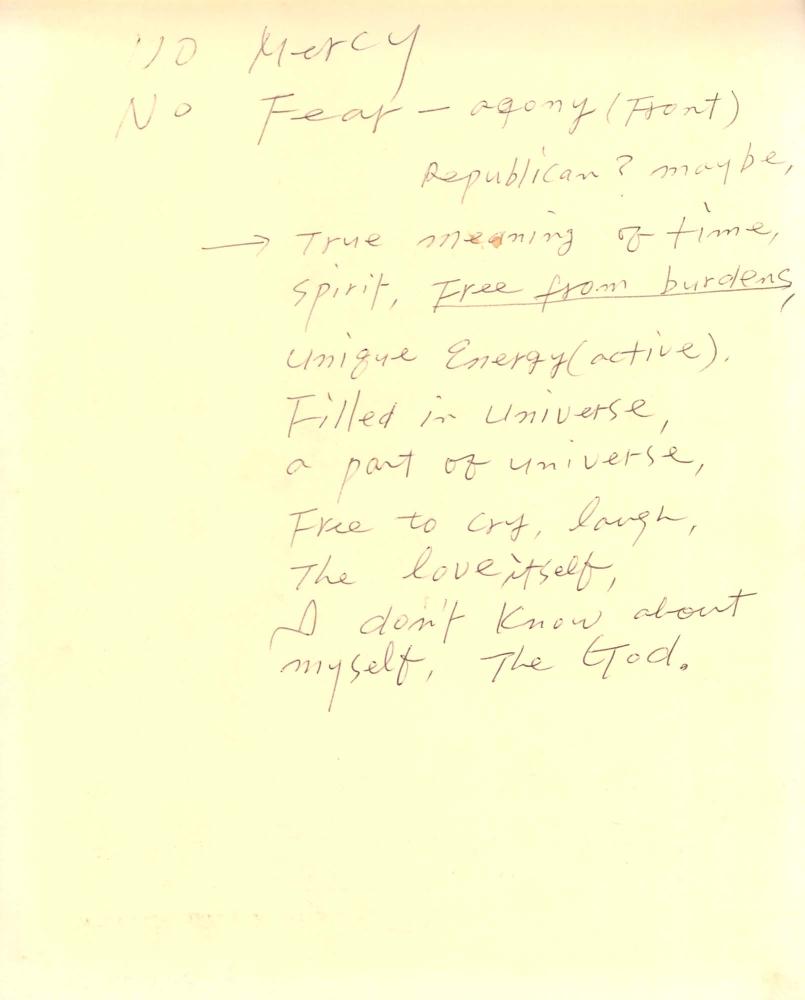 No Mercy
No Fear - agony (Front)
Republican? maybe,
→ True meaning of time,
spirit, Free from burdens,
unique Energy (active).
Filled in universe,
a part of universe,
Free to cry, laugh,
The love itself,
I don't know about
myself, The God.